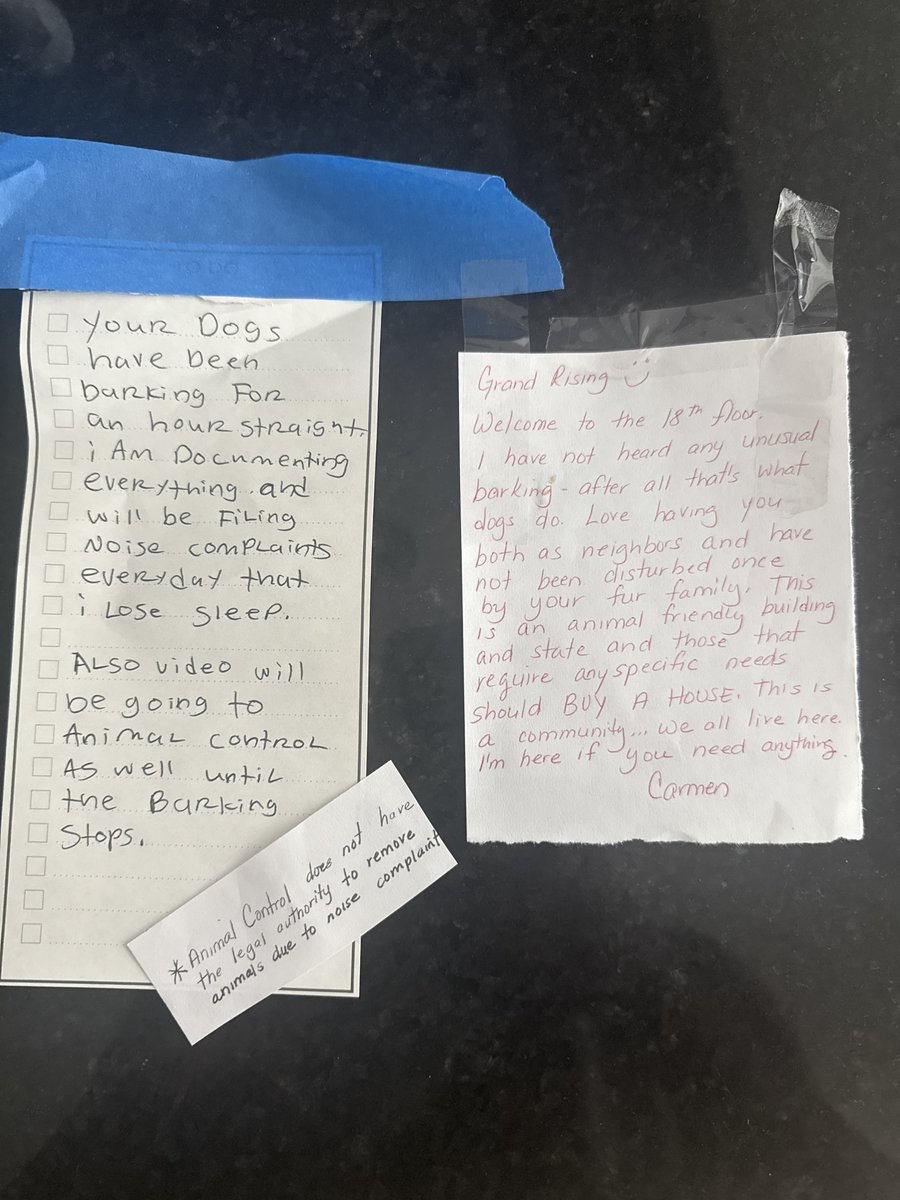 TO DO
YOUR DOGS
have been
barking For
an hour straight.
i AM Documenting
everything and
will be Filing
Noise complaints
everyday that
i Lose sleep.
ALSO video will
be going to
Animal control
AS well until
the Barking
Stops.
*Animal Control does not have
the legal authority to remove
animals due to noise complaint
Grand Rising
Welcome to the 18th floor.
I have not heard any unusual
barking - after all that's what
dogs do. Love having you
both as neighbors and have
not been disturbed once
by your fur family. This
is an animal friendly building
and state and those that
require any specific needs
should BUY A HOUSE. This is
a community... we all live here.
I'm here if you need anything.
Carmen